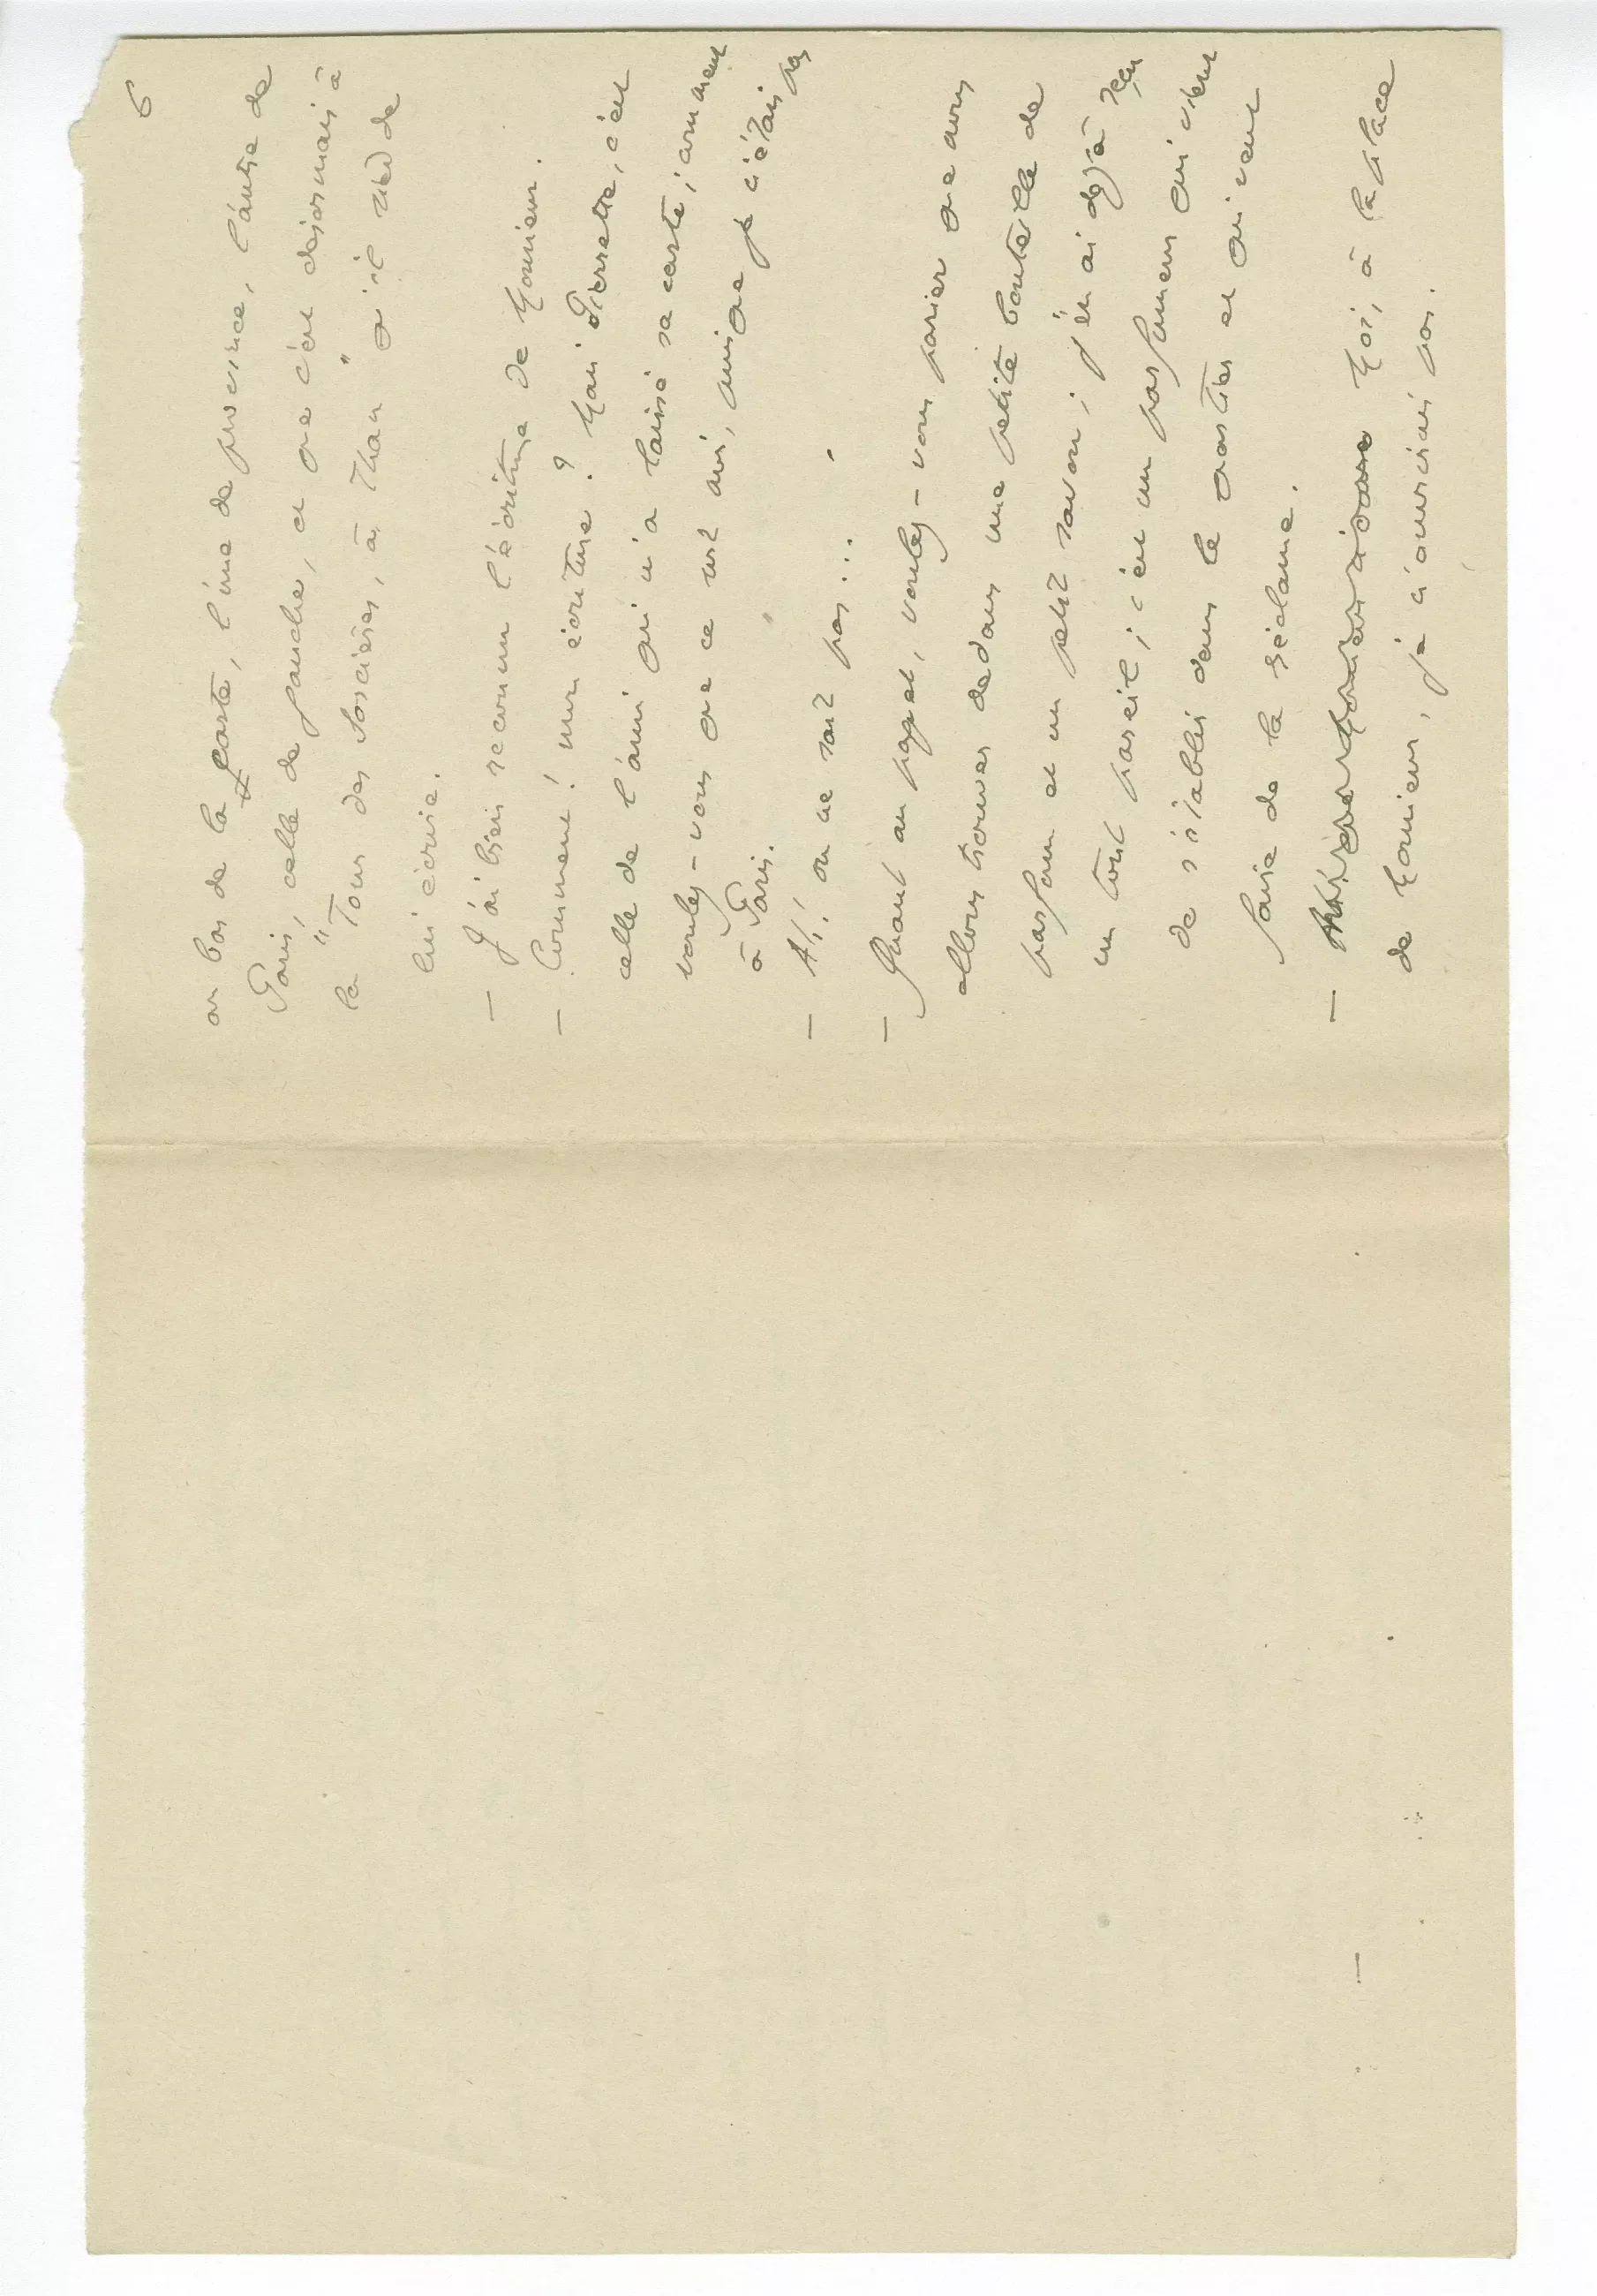 6
au bas de la carte, l'une de province, l'autre de
Paris, celle de gauche, et que c'est désormais à
la "Tour des Sorcières, à Thann" qu'il vend de
lui écrire.
— J'ai bien reconnu l'écriture de Monsieur.
— Comment ! mon écriture ? Mais Pierrette, c'est
celle de l'ami qui m'a laissé sa carte ; comment
voulez-vous que ce soit moi, puisque je n'étais pas
à Paris.
— Ah ! on ne sait pas...
— Quant au paquet, voulez-vous parier que nous
allons trouver dedans une petite bouteille de
parfum et un petit savon ; j'en ai déjà reçu
un tout pareil ; c'est un parfumeur qui vient
de s'établir dans le quartier et qui veut
faire de la réclame.
— Moi, à la place
de Monsieur, je n'ouvrirais pas.